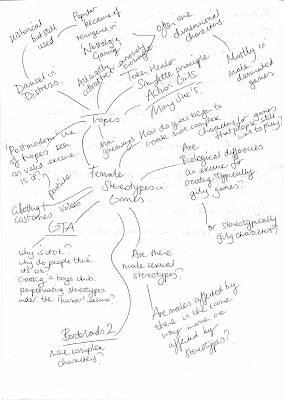 Historical
but still
used
Popular
because of
resurgence in
'Nostalgia
Gaming'
Often one
dimensional
characters.
Damsel in
Distress.
Attractive
Token Healer
Smurfette principle
Action Girls.
Mary Sue's.
Mostly in
male dominated
games.
Tropes
Postmodern use
of tropes
as valid excuse
is it?
How do you begin to
create more complex
characters for games
that people still
want to play?
female
Stereotypes in
Games.
Are
Biological differences
an excuse for
creating 'typically
girly games?
or stereotypically
girly characters?
clothing +
costumes
voices
GTA
why is it ok?
why do people think
its ok?
creating a boys club.
perpetuating stereotypes
under the 'humour' excuse?
Are there
male sexual
stereotypes?
Are males affected by
these in the same
way women are
affected by
stereotypes?
Borderlands 2
more complex
characters?